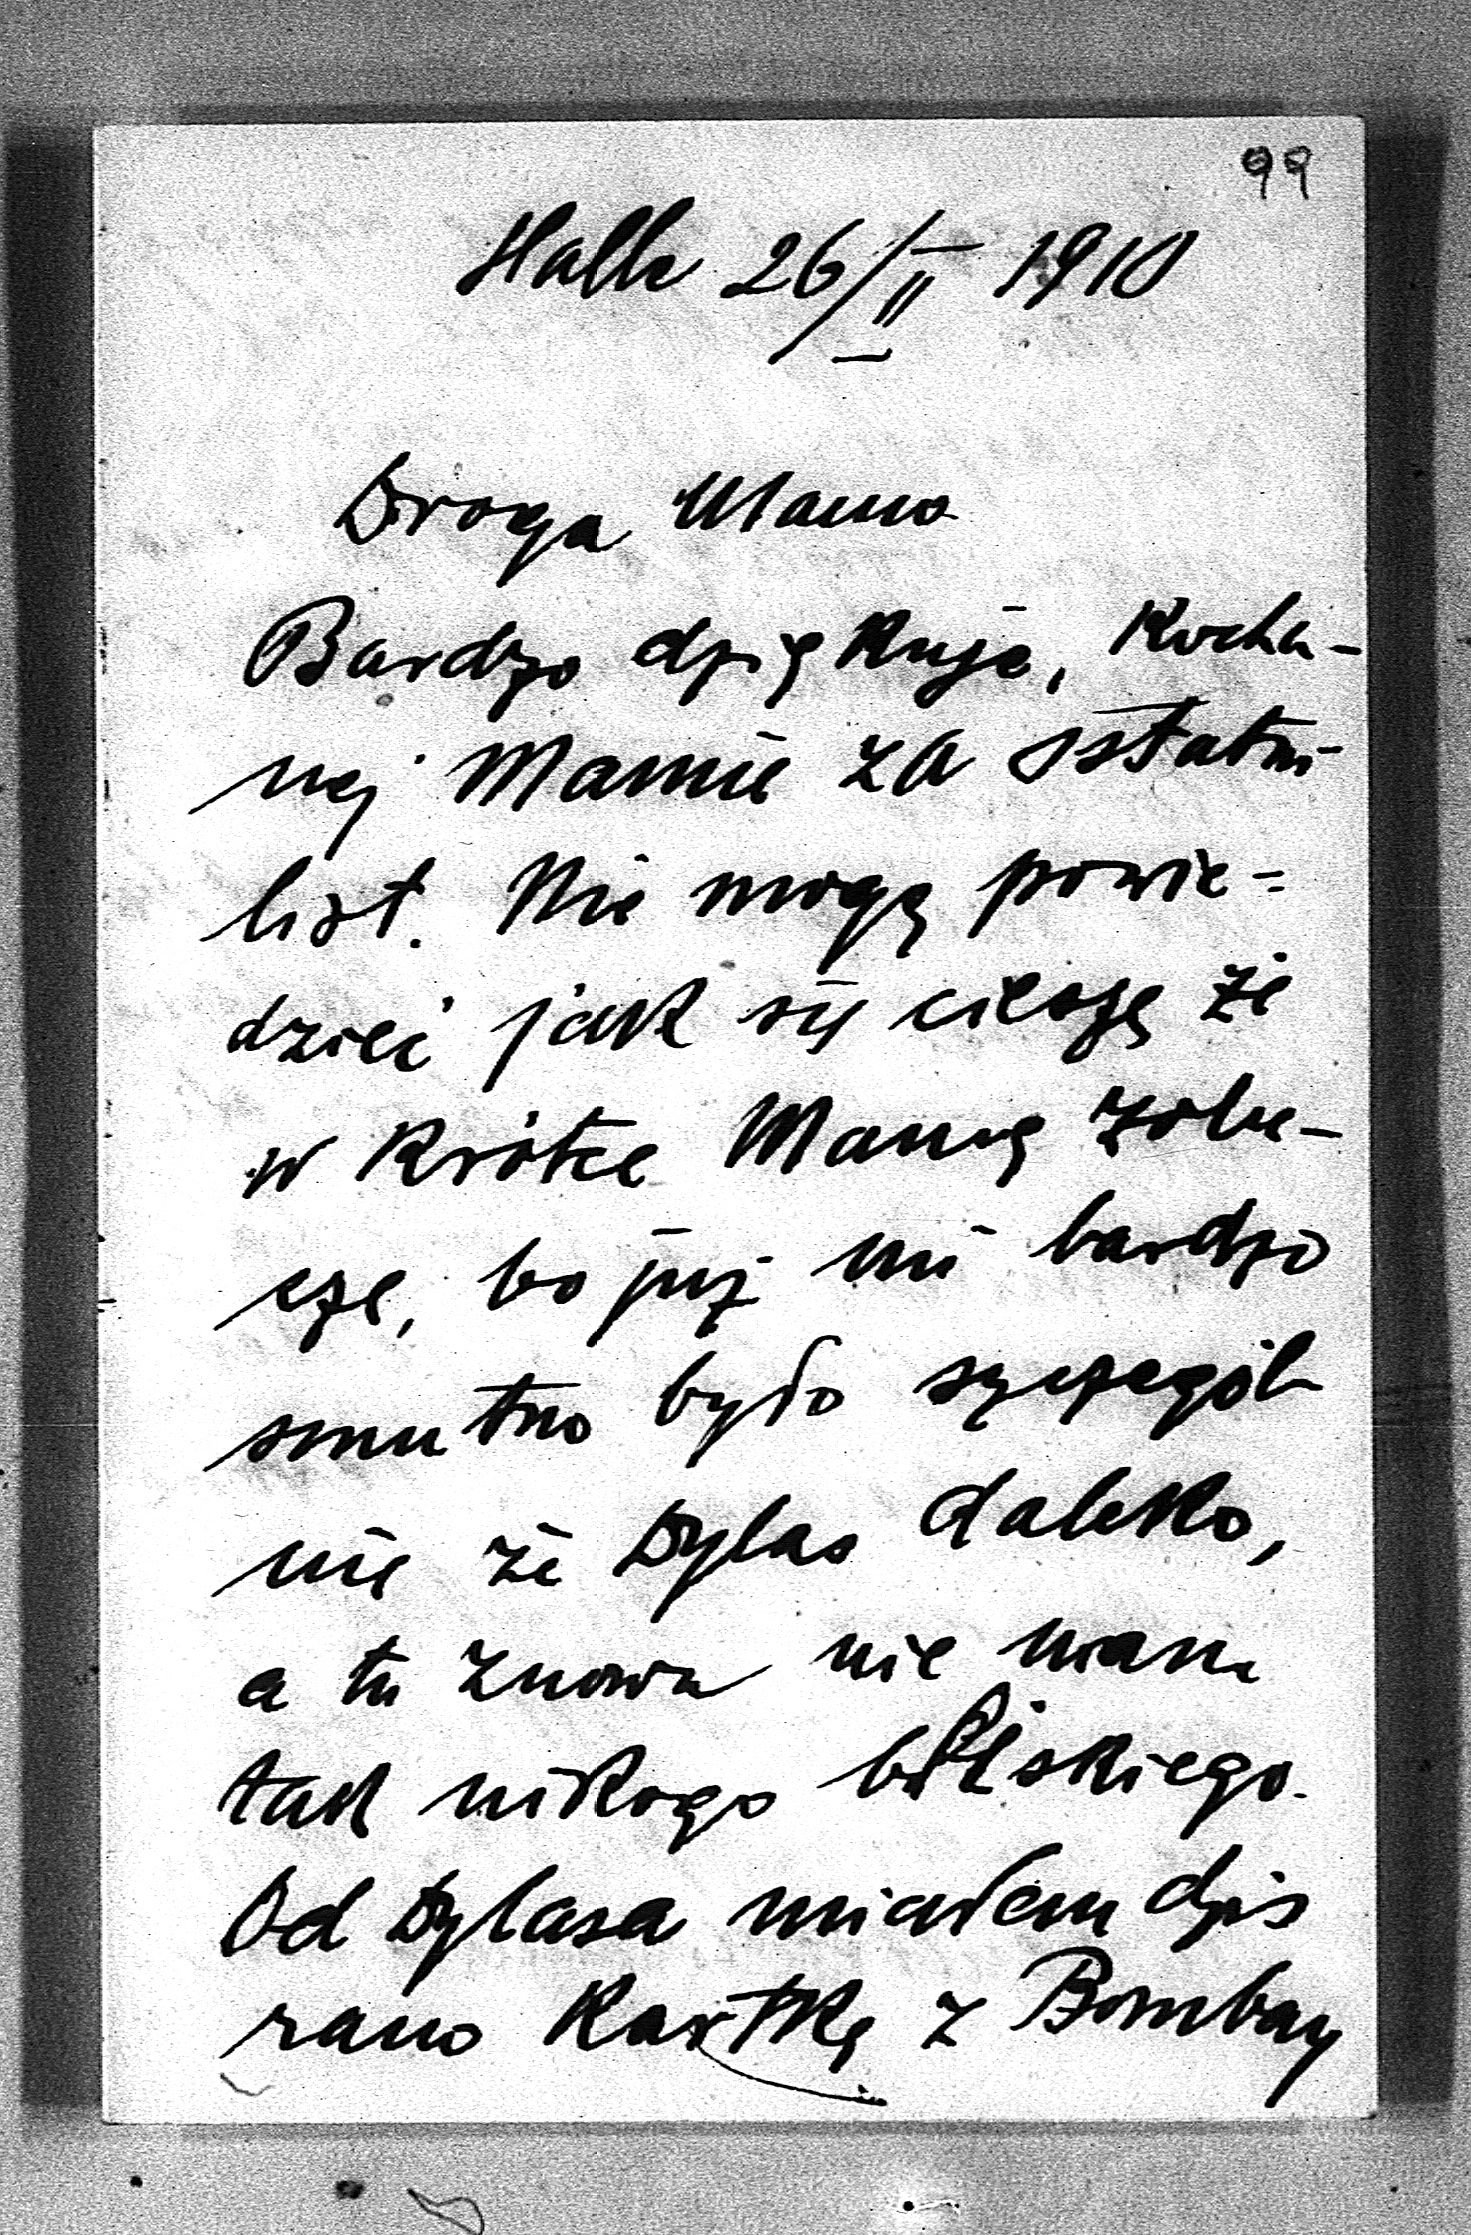 99
Halle 26/II 1910
Droga Mamo
Bardzo dziękuję, Kocha-
nej Mamie za ostatni
list. Nie mogę powie-
dzieć jak się cieszę że
w krótce Mamę zoba-
czę, bo już mi bardzo
smutno było szczegól
nie że Dylas daleko,
a tu znowu nie mam
tak nikogo bliskiego.
Od Dylasa miałem dziś
rano kartkę z Bombay